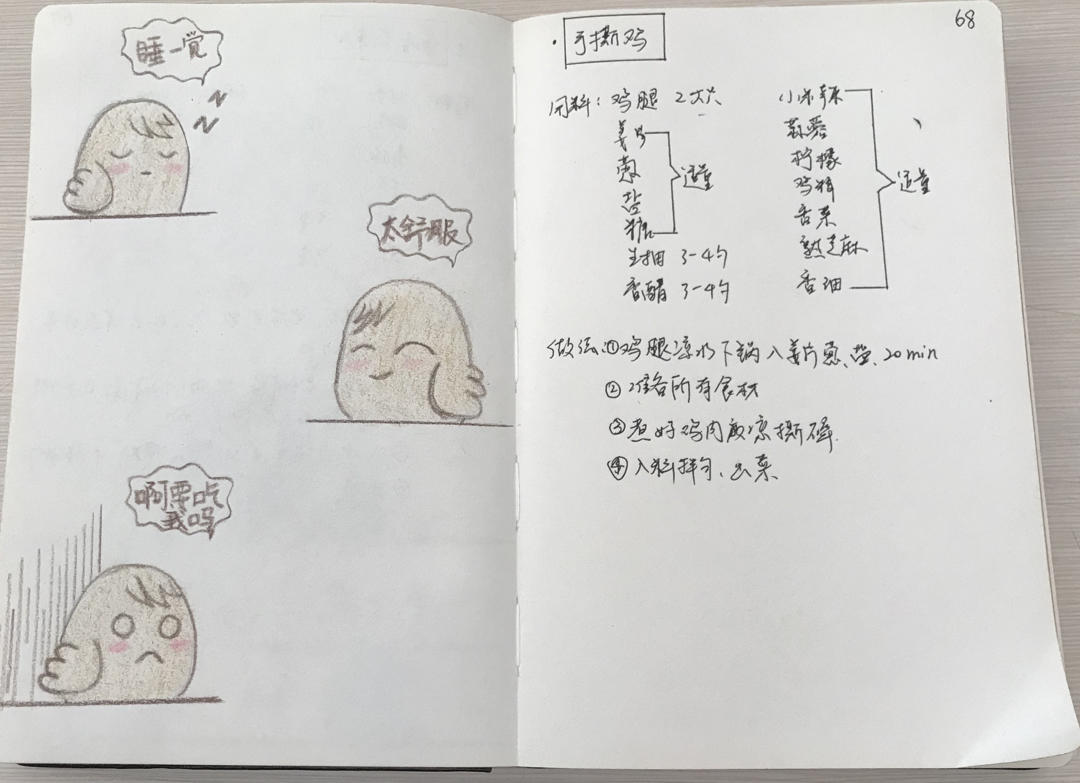 睡一觉
z
z
太舒服
啊要吃
我吗
68
·手撕鸡
用料：鸡腿 2大只
姜片
葱
盐
糖
适量
生抽 3-4勺
香醋 3-4勺
小米辣
蒜蓉
柠檬
鸡精
香菜
熟芝麻
香油
适量
做法：①鸡腿凉水下锅入姜片葱、煮、20min
②准备所有食材
③煮好鸡肉放凉撕碎
④入料拌匀、出菜